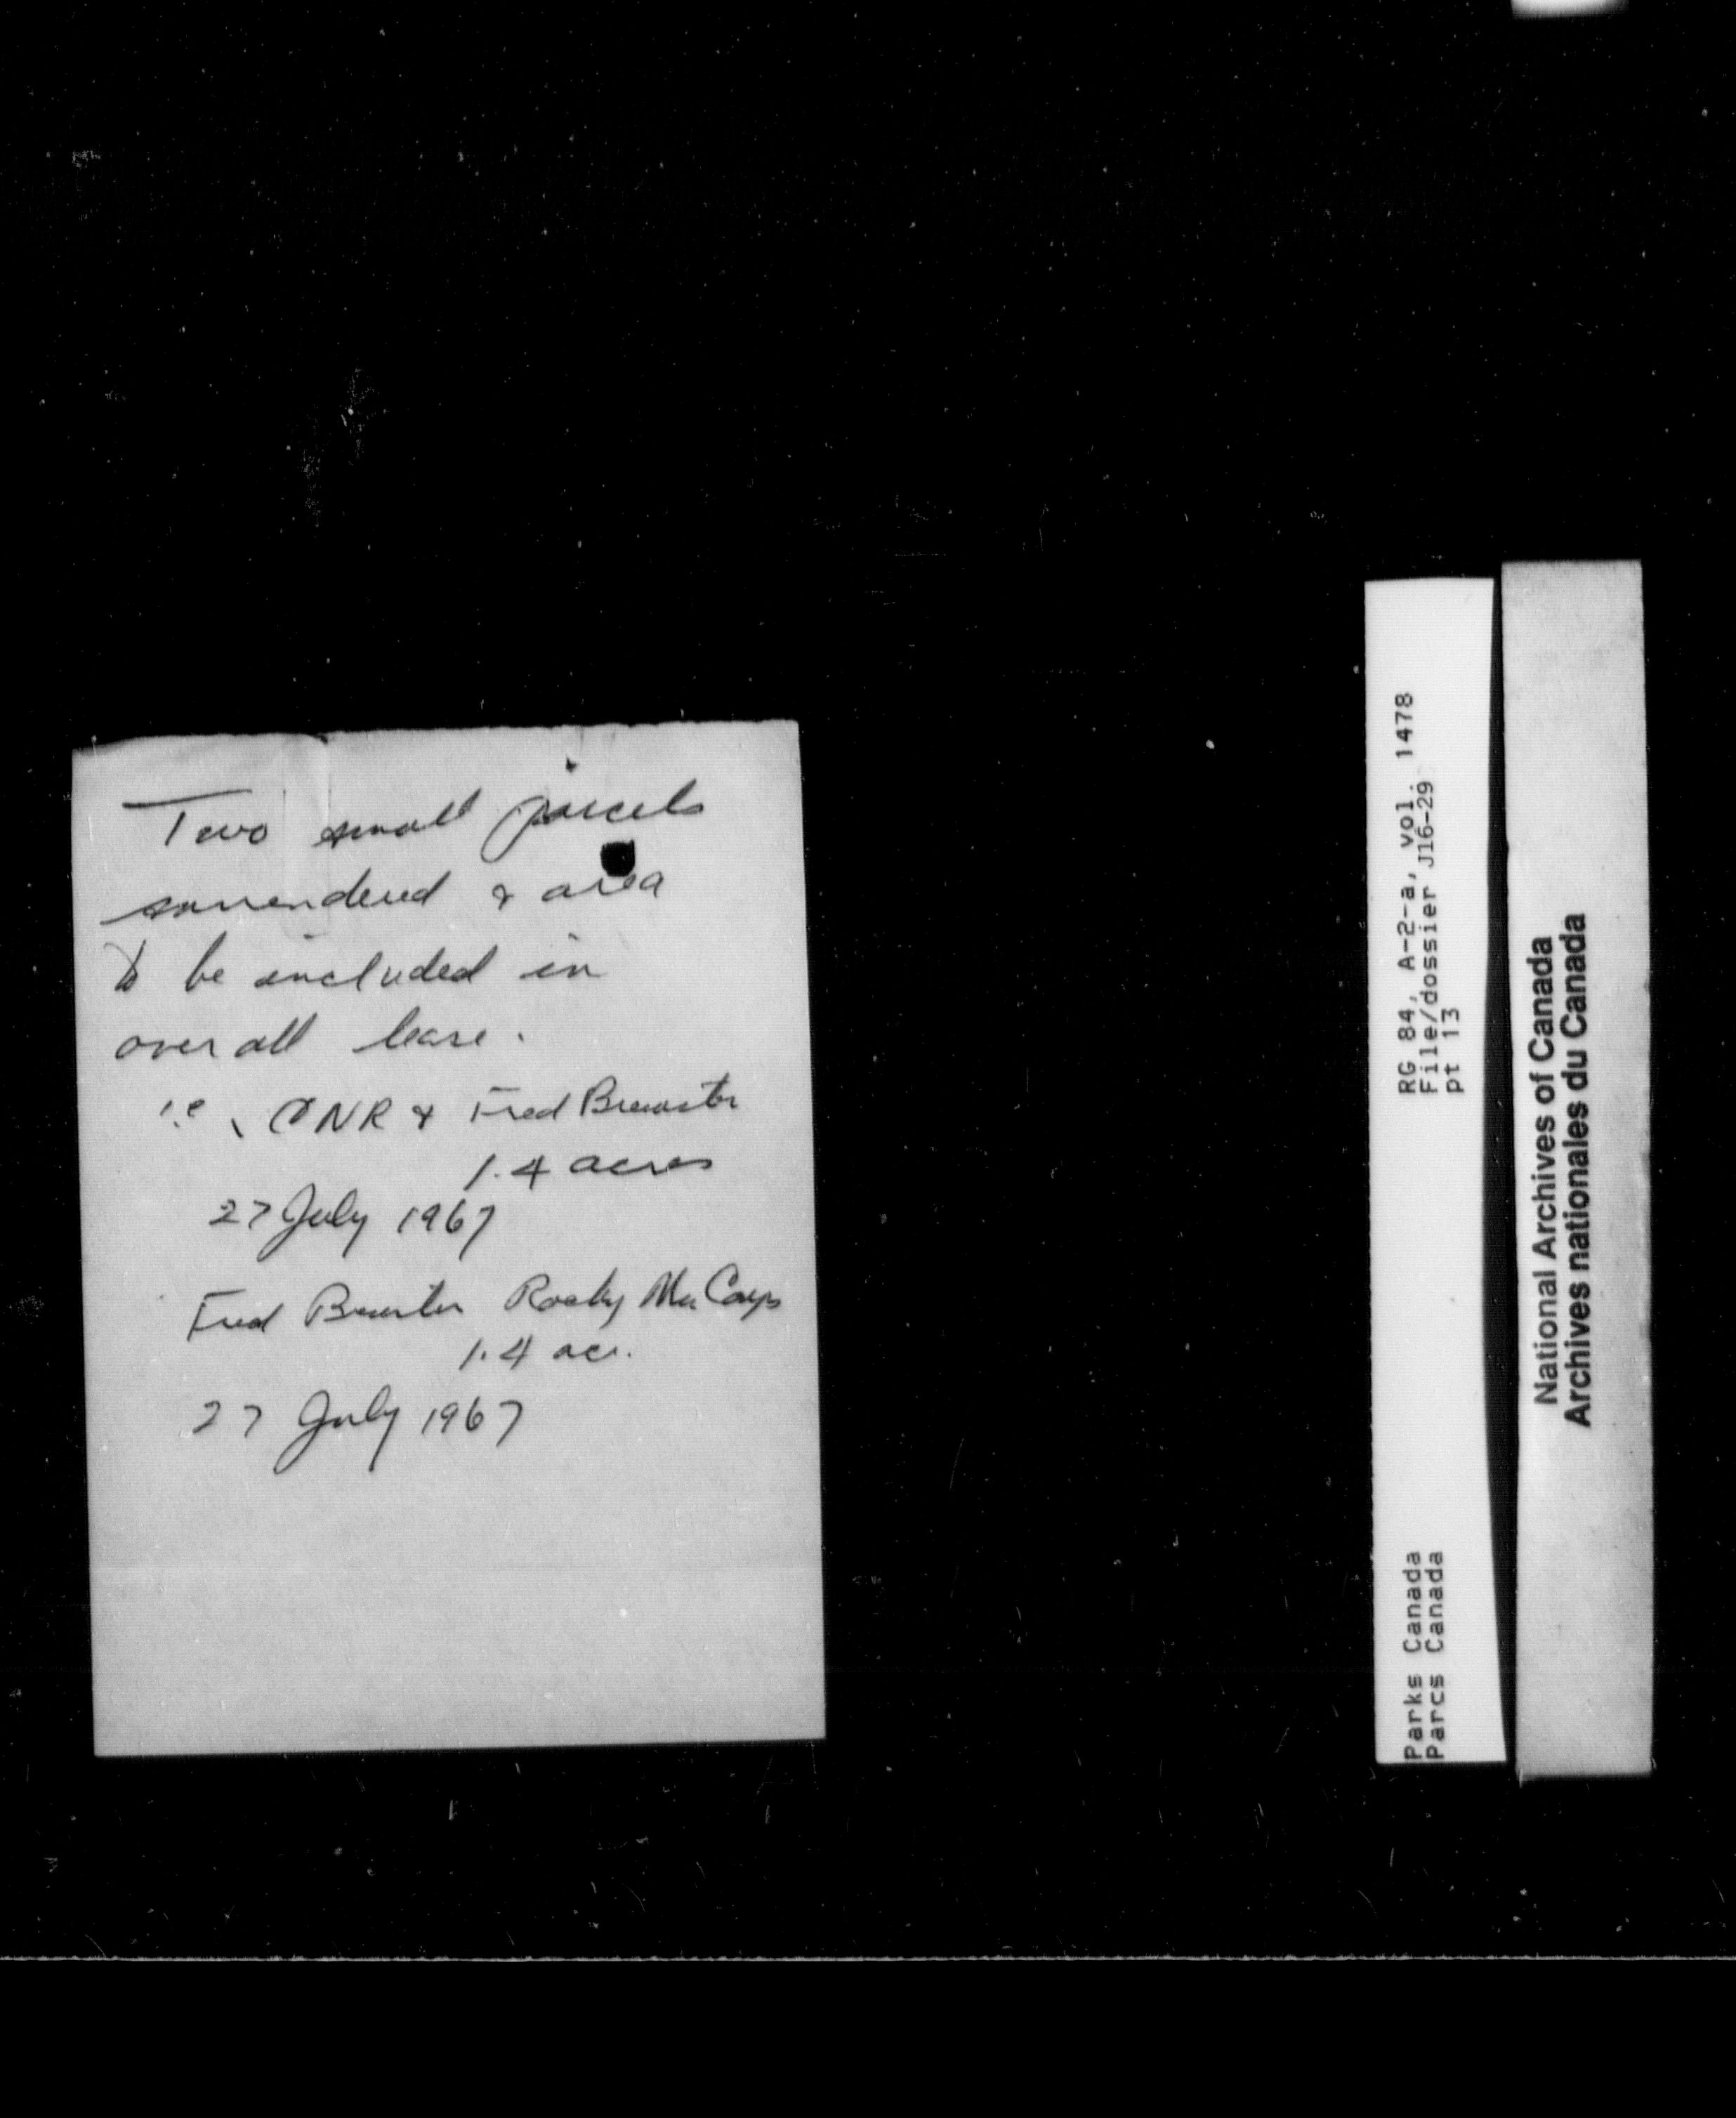 Two small parcels
surrendered & area
to be included in
over all lease.
i.e, CNR & Fred Brewster
1.4 acres
27 July 1967
Fred Brewster Rocky Mn Camps
1.4 acr.
27 July 1967
RG 84, A-2-a, vol. 1478
File/dossier J16-29
pt 13
Parks Canada
Parcs Canada
National Archives of Canada
Archives nationales du Canada